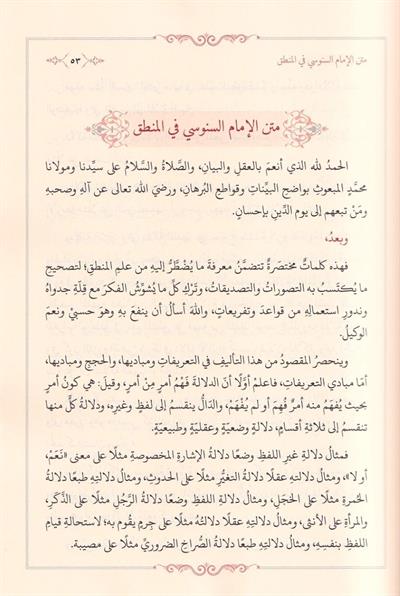 متن الإمام السنوسي في المنطق ٥٣
متن الإمام السنوسي في المنطق
الحمدُ لله الذي أنعمَ بالعقلِ والبيانِ، والصَّلاةُ والسَّلامُ على سيِّدنا ومولانا
محمَّدٍ المبعوثِ بواضحِ البيِّناتِ وقواطعِ البُرهانِ، ورضيَ اللهُ تعالى عن آلهِ وصحبهِ
ومَنْ تبعهم إلى يومِ الدِّينِ بإحسانٍ.
وبعدُ،
فهذه كلماتٌ مختصرَةٌ تتضمَّنُ معرفةَ ما يُضْطَرُّ إليهِ من علمِ المنطقِ؛ لتصحيحِ
ما يُكتَسبُ به التصوراتُ والتصديقاتُ، وتَرْكِ كلِّ ما يُشوِّشُ الفكرَ مع قلَّةِ جدواهُ
وندورِ استعمالِهِ من قواعدَ وتفريعاتٍ، واللهَ أسألُ أن ينفعَ بهِ وهوَ حسبيْ ونعمَ
الوكيلُ.
وينحصرُ المقصودُ من هذا التأليفِ في التعريفاتِ ومباديها، والحججِ ومباديها،
أمّا مبادي التعريفاتِ، فاعلمْ أوَّلًا أنَّ الدلالةَ فَهْمُ أمرٍ مِنْ أمرٍ، وقيلَ: هيَ كونُ أمرٍ
بحيث يُفهَمُ منه أمرٌ فُهِمَ أو لم يُفْهَمْ، والدَّالُّ ينقسمُ إلى لفظٍ وغيرِهِ، ودلالةُ كلٍّ منها
تنقسمُ إلى ثلاثةِ أقسامٍ، دلالةٍ وضعيَّةٍ وعقليَّةٍ وطبيعيَّةٍ.
فمثالُ دلالةِ غيرِ اللفظِ وضعًا دلالةُ الإشارةِ المخصوصةِ مثلًا على معنى «نَعَمْ،
أو لا»، ومثالُ دلالتهِ عقلًا دلالةُ التغيُّرِ مثلًا على الحدوثِ، ومثالُ دلالتِهِ طبعًا دلالةُ
الحُمرةِ مثلًا على الخَجَلِ، ومثالُ دلالةِ اللفظِ وضعًا دلالةُ الرَّجُلِ مثلًا على الذَّكَرِ،
والمرأةِ على الأنثى، ومثالُ دلالتِهِ عقلًا دلالتُهُ مثلًا على جِرمٍ يقُومُ به؛ لاستحالةِ قيامِ
اللفظِ بنفسِهِ، ومثالُ دلالتِهِ طبعًا دلالةُ الصُّراخِ الضروريِّ مثلًا على مصيبة.